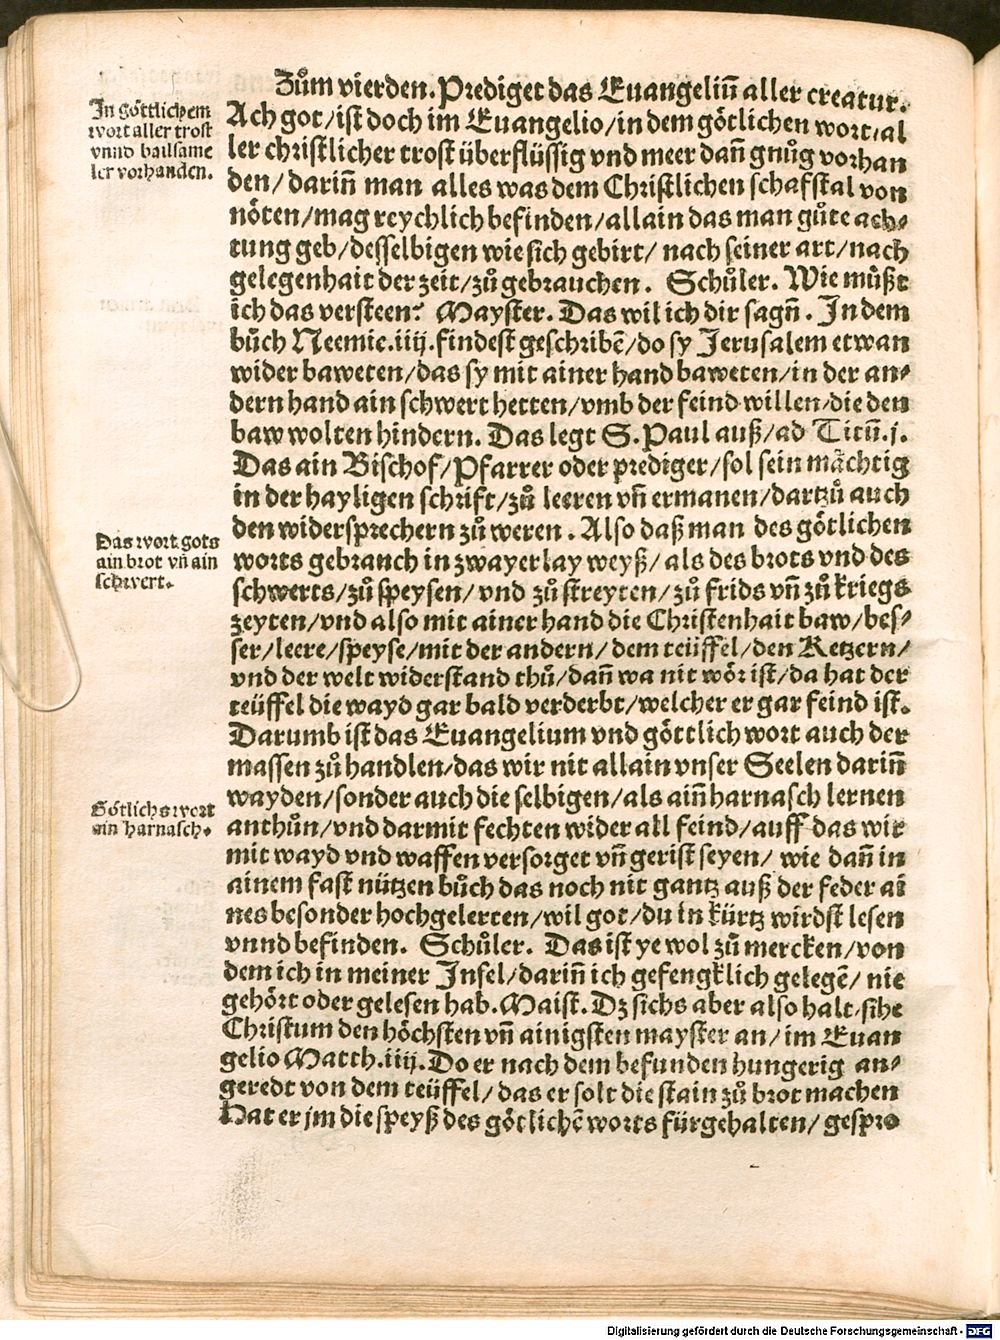 Zům vierden. Prediget das Euangeliū aller creatur.
In göttlichem
wort aller trost
vnnd hailsame
ler vorhanden.
Ach got/ ist doch im Euangelio/ in dem götlichen wort/ al
ler christlicher trost überflüssig vnd meer dañ gnůg vorhan
den/ dariñ man alles was dem Christlichen schafstal von
nöten/ mag reychlich befinden/ allain das man gůte ach⸗
tung geb/ desselbigen wie sich gebirt/ nach seiner art/ nach
gelegenhait der zeit/ zů gebrauchen. Schůler. Wie můßt
ich das versteen? Mayster. Das wil ich dir sagñ. In dem
bůch Neemie.iiij. findest geschribē/ do sy Jerusalem etwan
wider baweten/ das sy mit ainer hand baweten/ in der an⸗
dern hand ain schwert hetten/ vmb der feind willen/ die den
baw wolten hindern. Das legt S. Paul auß/ ad Titū.j.
Das ain Bischof/ Pfarrer oder prediger/ sol sein mächtig
in der hayligen schrift/ zů leeren vñ ermanen/ dartzů auch
den widersprechern zů weren. Also daß man des götlichen
Das wort gots
ain brot vñ ain
schwert.
worts gebrauch in zwayerlay weyß/ als des brots vnd des
schwerts/ zů speysen/ vnd zů streyten/ zů frids vñ zů kriegs
zeyten/ vnd also mit ainer hand die Christenhait baw/ bes⸗
ser/ leere/ speyse/ mit der andern/ dem teüffel/ den Ketzern/
vnd der welt widerstand thů/ dañ wa nit wör ist/ da hat der
teüffel die wayd gar bald verderbt/ welcher er gar feind ist.
Darumb ist das Euangelium vnd göttlich wort auch der
massen zů handlen/ das wir nit allain vnser Seelen dariñ
Götlichs wort
ain harnasch.
wayden/ sonder auch die selbigen/ als aiñ harnasch lernen
anthůn/ vnd darmit fechten wider all feind/ auff das wir
mit wayd vnd waffen versorget vñ gerist seyen/ wie dañ in
ainem fast nützen bůch das noch nit gantz auß der feder ai
nes besonder hochgelerten/ wil got/ du in kürtz wirdst lesen
vnnd befinden. Schůler. Das ist ye wol zů mercken/ von
dem ich in meiner Insel/ dariñ ich gefengklich gelegē/ nie
gehört oder gelesen hab. Maist. Dz sichs aber also halt/ sihe
Christum den höchsten vñ ainigsten mayster an/ im Euan
gelio Matth.iiij. Do er nach dem befunden hungerig an⸗
geredt von dem teüffel/ das er solt die stain zů brot machen
Hat er jm die speyß des götlichē worts fürgehalten/ gespro
Digitalisierung gefördert durch die Deutsche Forschungsgemeinschaft - DFG